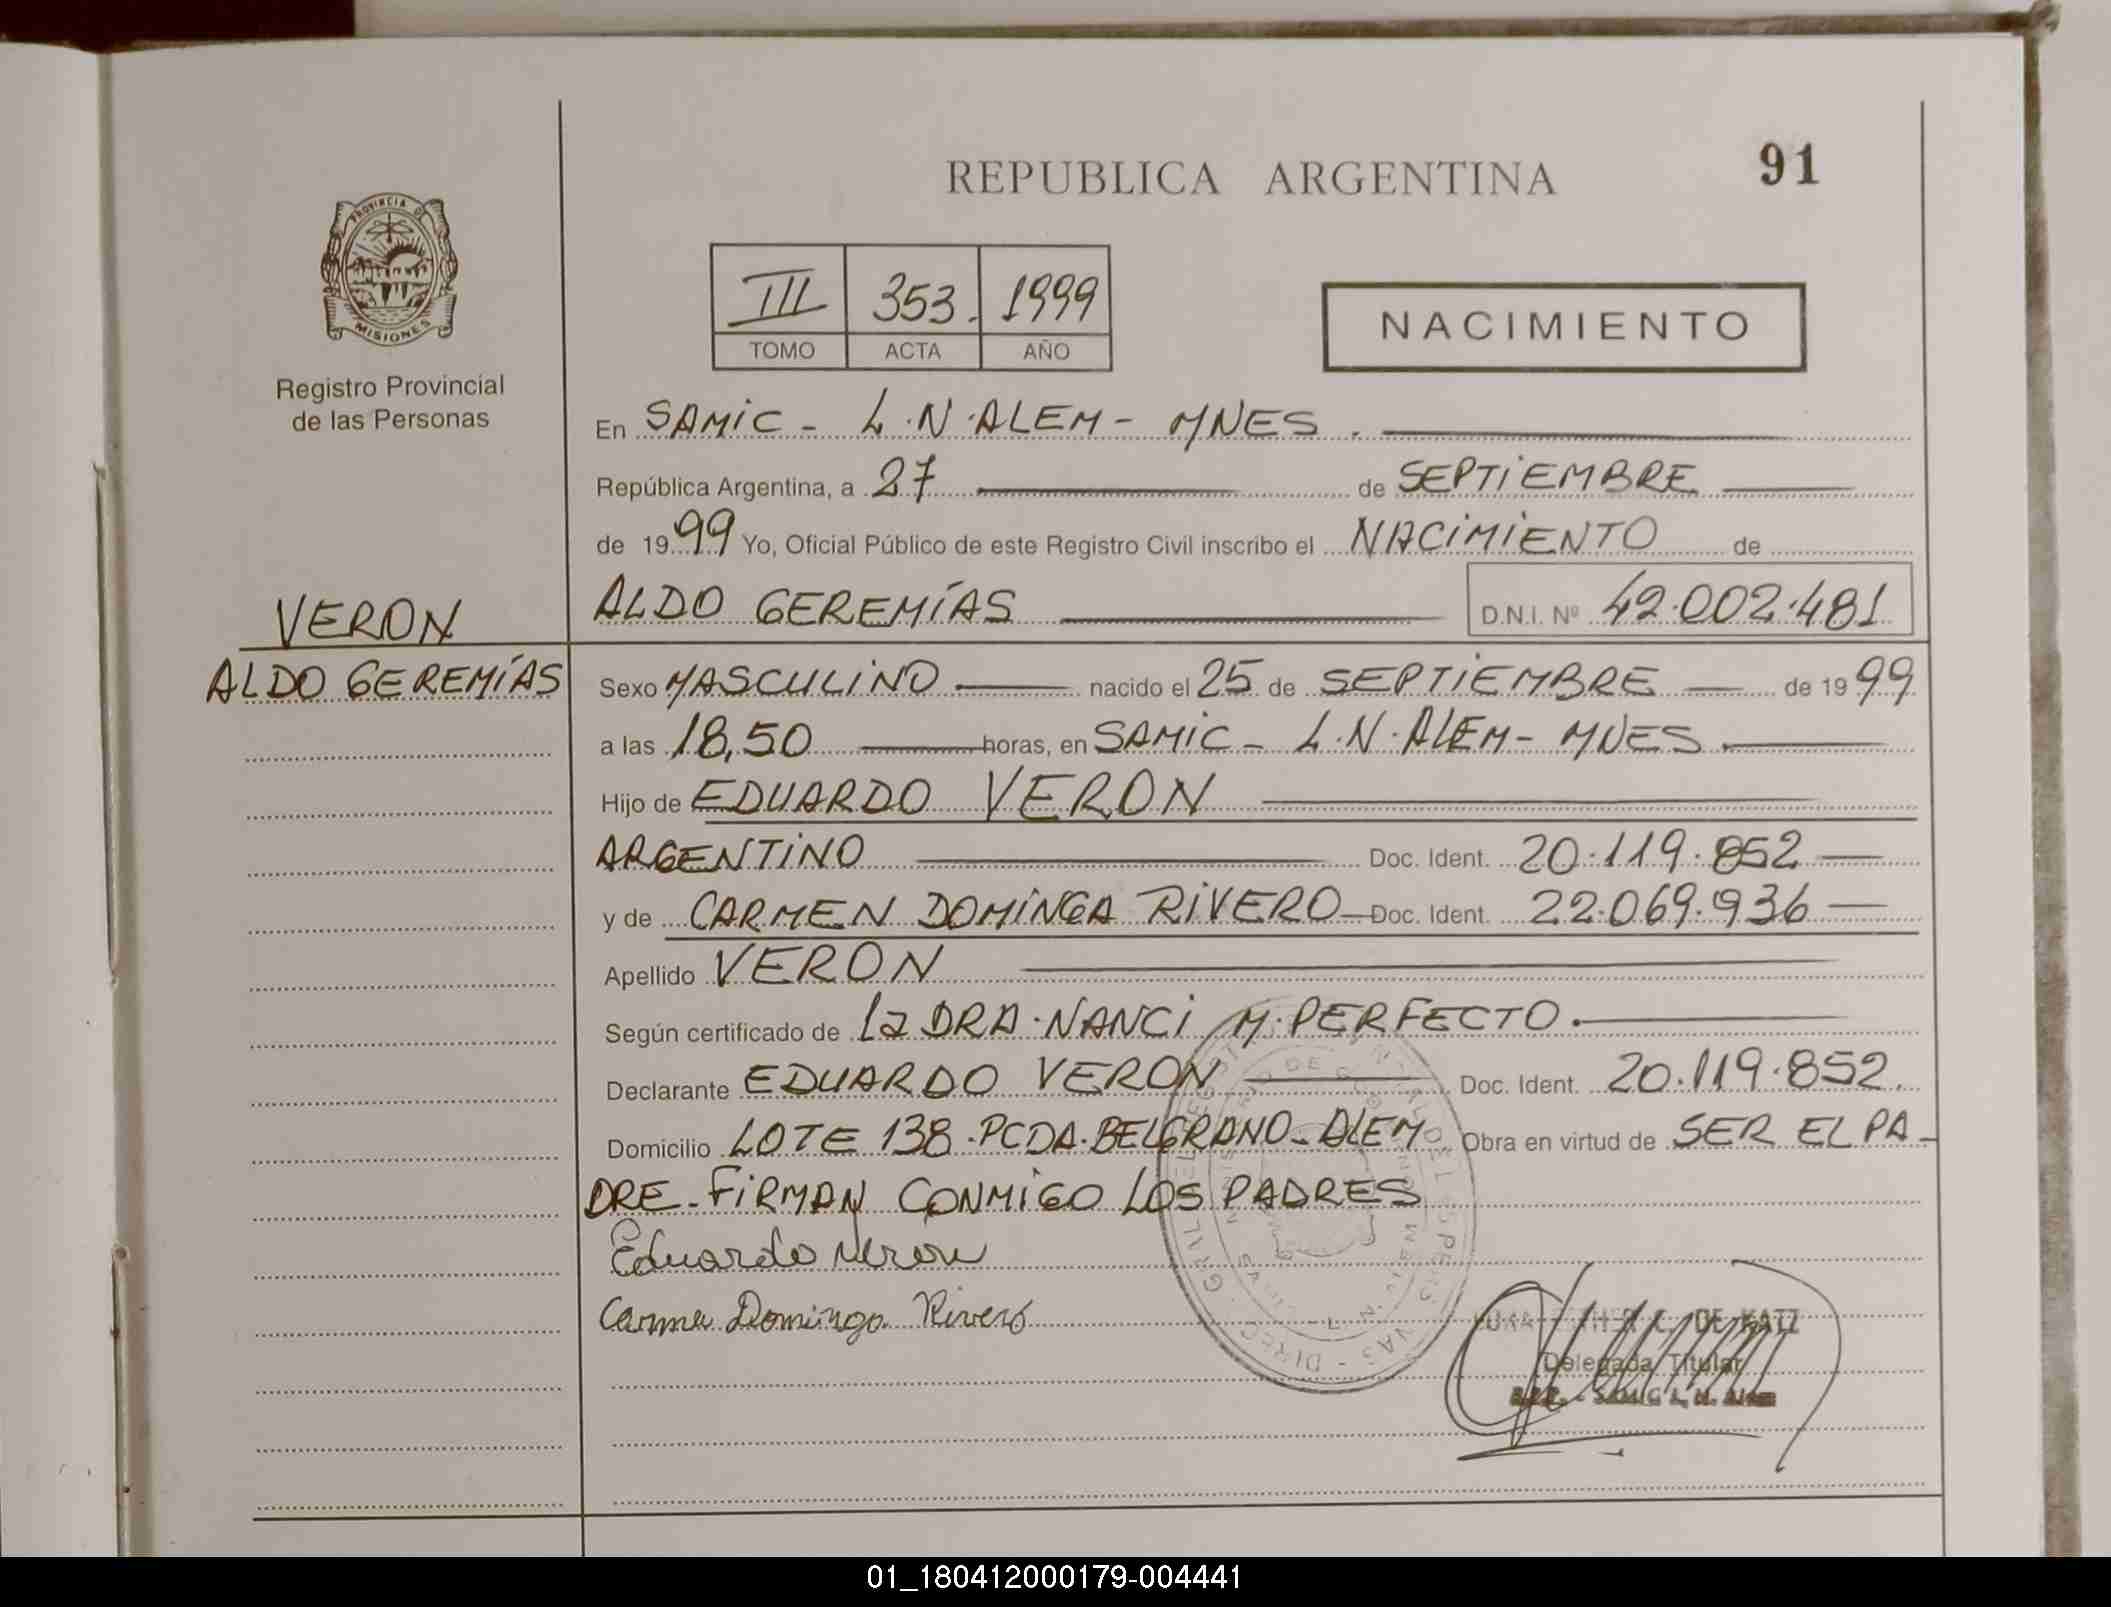 REPUBLICA ARGENTINA
91
PROVINCIA DE
MISIONES
Registro Provincial
de las Personas
III 353. 1999
TOMO ACTA AÑO
NACIMIENTO
En SAMIC - L.N.ALEM - MNES.
República Argentina, a 27 de SEPTIEMBRE
de 1999 Yo, Oficial Público de este Registro Civil inscribo el NACIMIENTO de
ALDO GEREMÍAS D.N.I. Nº 42.002.481
VERON
ALDO GEREMÍAS
Sexo MASCULINO nacido el 25 de SEPTIEMBRE de 1999
a las 18,50 horas, en SAMIC - L.N.ALEM - MNES.
Hijo de EDUARDO VERON
ARGENTINO Doc. Ident. 20.119.852
y de CARMEN DOMINGA RIVERO Doc. Ident. 22.069.936
Apellido VERON
Según certificado de la DRA. NANCI M. PERFECTO.
Declarante EDUARDO VERON Doc. Ident. 20.119.852.
Domicilio LOTE 138.PCDA.BELGRANO-ALEM Obra en virtud de SER EL PA-
DRE-FIRMAN CONMIGO LOS PADRES
Eduardo Veron
Carmen Dominga Rivero
DE KATZ
Delegada Titular
L. N. Alem
01_180412000179-004441